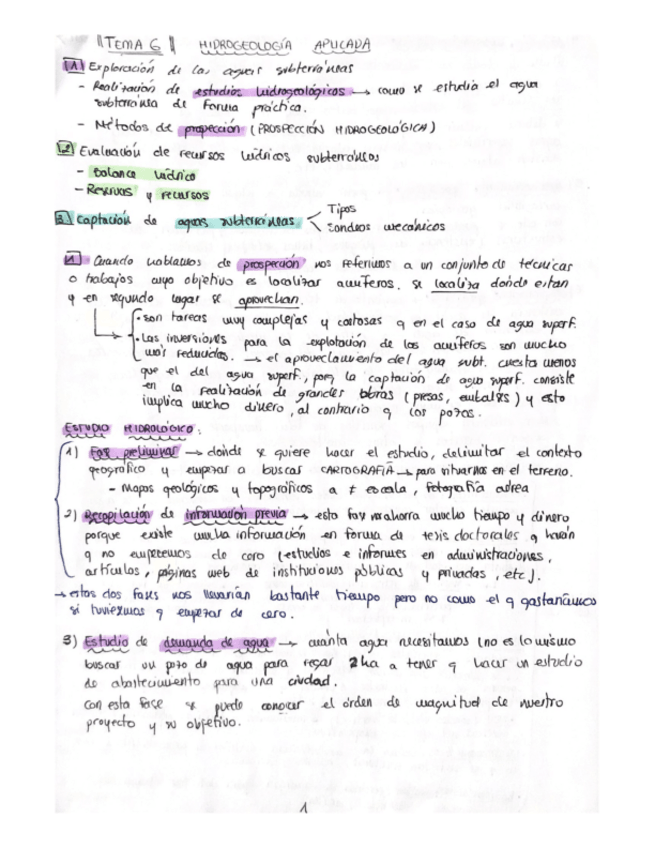 TEMA 6 HIDROGEOLOGÍA APLICADA
1. Exploración de las aguas subterráneas
- Realización de estudios hidrogeológicos → como se estudia el agua
subterránea de forma práctica.
- Métodos de prospección (PROSPECCIÓN HIDROGEOLÓGICA)
2. Evaluación de recursos hídricos subterráneos
- Balance hídrico
- Reservas y recursos
3. Captación de aguas subterráneas < Tipos
Sondeos mecánicos
1. Cuando hablamos de prospección nos referimos a un conjunto de técnicas
o trabajos cuyo objetivo es localizar acuíferos. Se localiza donde están
y en segundo lugar se aprovechan.
· son tareas muy complejas y costosas q en el caso de agua superf.
· Las inversiones para la explotación de los acuíferos son mucho
más reducidas. → el aprovechamiento del agua subt. cuesta menos
que el del agua superf., porq la captación de agua superf. consiste
en la realización de grandes obras (presas, embalses) y esto
implica mucho dinero, al contrario q los pozos.
ESTUDIO HIDROLÓGICO:
1) Fase preliminar → donde se quiere hacer el estudio, delimitar el contexto
geográfico y empezar a buscar CARTOGRAFÍA → para situarnos en el terreno.
- Mapas geológicos y topográficos a ≠ escala, fotografía aérea
2) Recopilación de información previa → esta fase nos ahorra mucho tiempo y dinero
porque existe mucha información en forma de tesis doctorales q harán
q no empecemos de cero (estudios e informes en administraciones,
artículos, páginas web de instituciones públicas y privadas, etc).
→ estas dos fases nos llevarían bastante tiempo pero no como el q gastaríamos
si tuviésemos q empezar de cero.
3) Estudio de demanda de agua → cuánta agua necesitamos (no es lo mismo
buscar un pozo de agua para regar 2ha a tener q hacer un estudio
de abastecimiento para una ciudad.
Con esta fase se puede conocer el orden de magnitud de nuestro
proyecto y su objetivo.
1